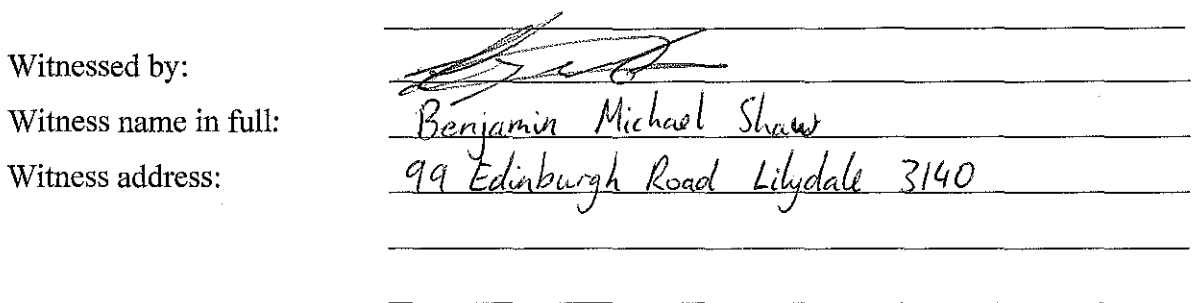 Witnessed by:
Witness name in full: Benjamin Michael Shaw
Witness address: 99 Edinburgh Road Lilydale 3140